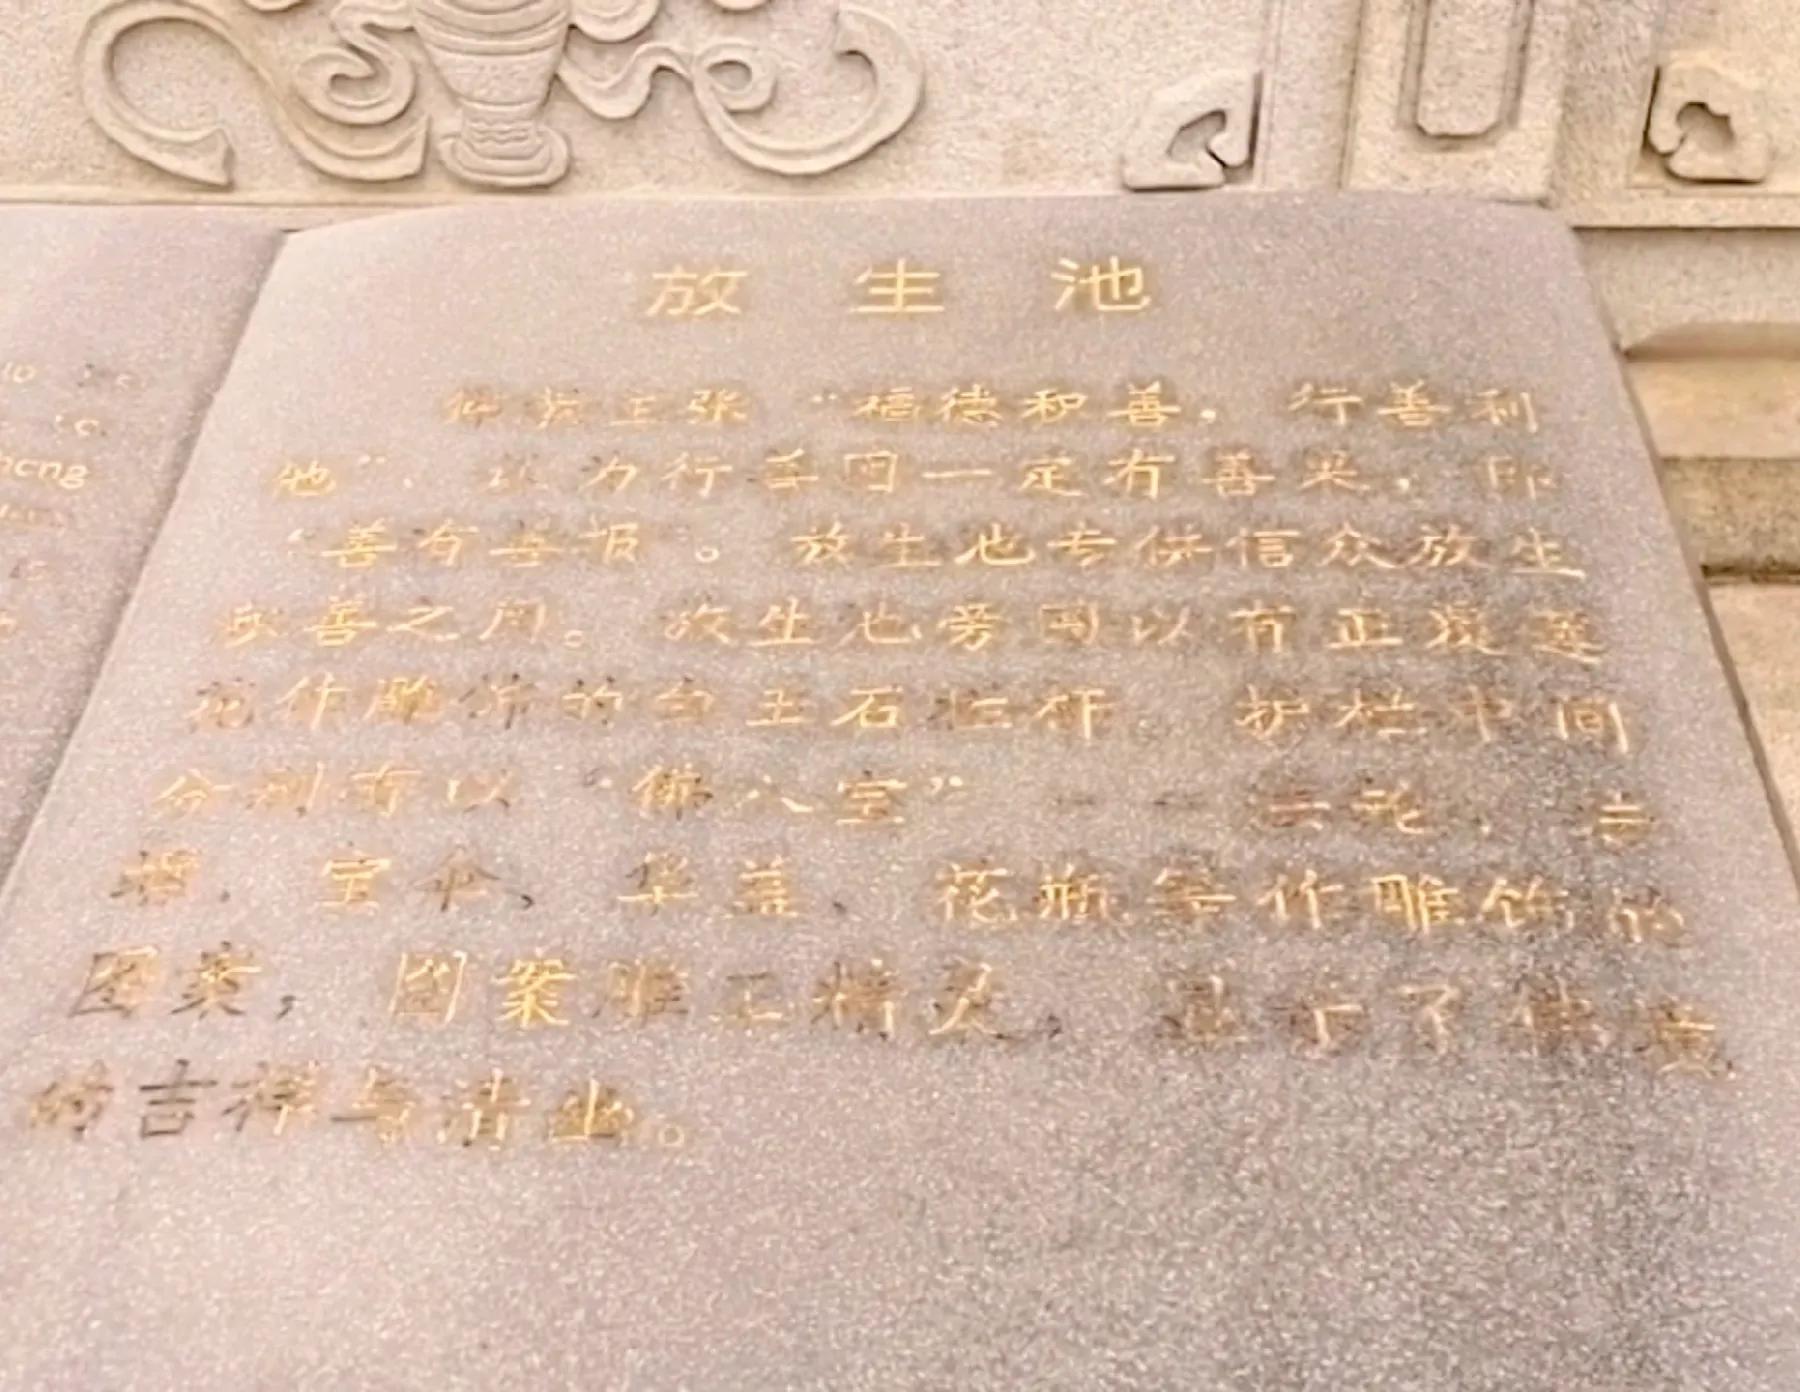 放生池
佛教主张“福德和善，行善利
他”，认为行善因一定有善果，即
“善有善报”。放生池专供信众放生
积善之用。放生池旁围以有正覆莲
花作雕饰的白玉石栏杆，护栏中间
分别有以“佛八宝”——法轮、吉
祥、宝伞、华盖、花瓶等作雕饰的
图案，图案雕工精美，显示了佛教
的吉祥与清幽。
heng